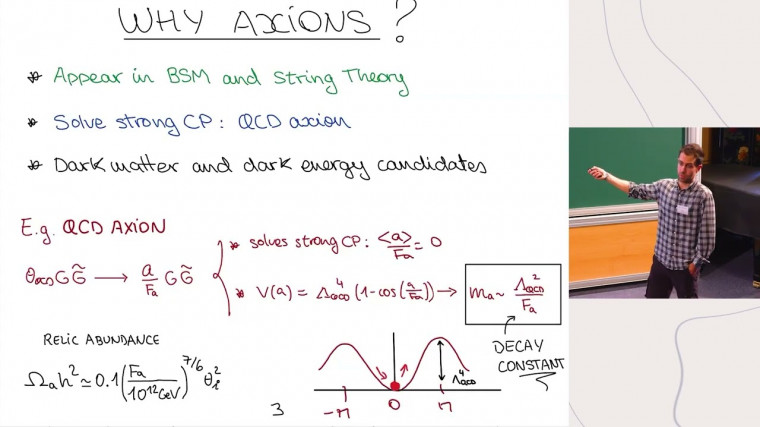 WHY AXIONS?
* Appear in BSM and String Theory
* Solve strong CP: QCD axion
* Dark matter and dark energy candidates
E.g. QCD AXION
θ_QCD G G̃ → a/F_a G G̃
* solves strong CP: <a>/F_a = 0
* V(a) = Λ_QCD^4 (1-cos(a/F_a)) → m_a ~ Λ_QCD^2/F_a
DECAY CONSTANT
RELIC ABUNDANCE
Ω_a h^2 ≃ 0.1 (F_a/10^12 GeV)^7/6 θ_i^2
Λ_QCD^4
-π 0 π
3